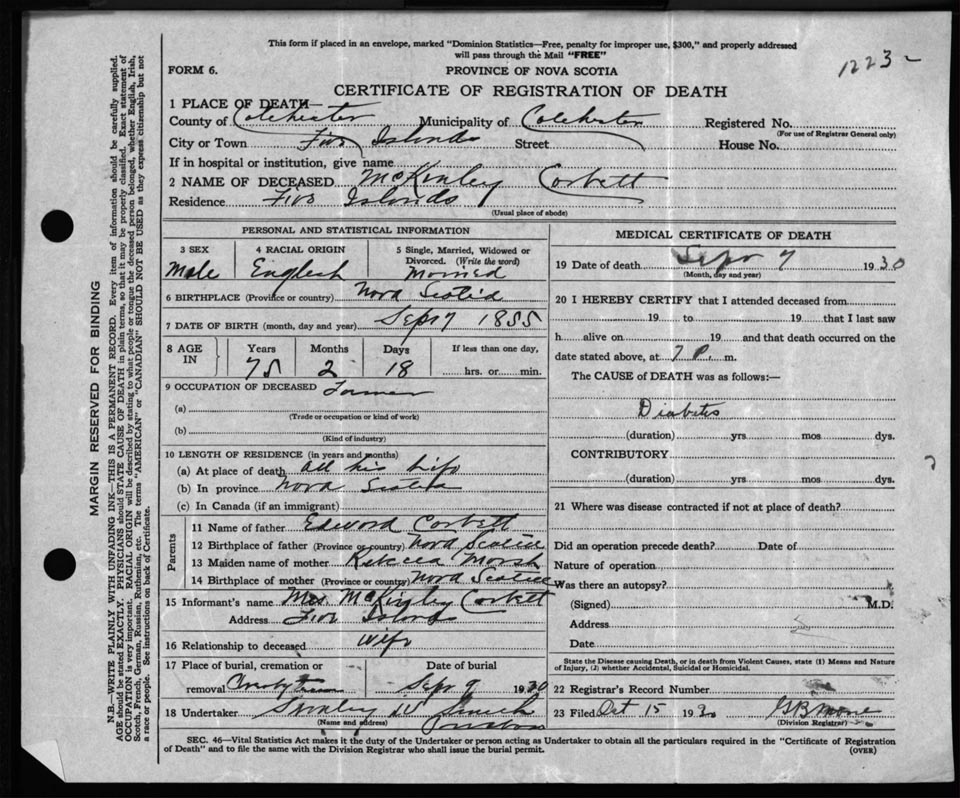 This form if placed in an envelope, marked "Dominion Statistics—Free, penalty for improper use, $300," and properly addressed
will pass through the Mail "FREE"
1223
FORM 6.
PROVINCE OF NOVA SCOTIA
CERTIFICATE OF REGISTRATION OF DEATH
1 PLACE OF DEATH—
County of Colchester Municipality of Colchester Registered No.
(For use of Registrar General only)
City or Town Five Islands Street House No.
If in hospital or institution, give name
2 NAME OF DECEASED McKinley Corbett
Residence Five Islands
(Usual place of abode)
MARGIN RESERVED FOR BINDING
N.B.—WRITE PLAINLY WITH UNFADING INK—THIS IS A PERMANENT RECORD. Every item of information should be carefully supplied.
AGE should be stated EXACTLY. PHYSICIANS should STATE CAUSE OF DEATH in plain terms, so that it may be properly classified. Exact statement of
OCCUPATION is very important. RACIAL ORIGIN will be described by stating to what people or tongue the deceased person belonged, whether English, Irish,
Scotch, French, German, Russian, Ruthenian, etc. The terms "AMERICAN" or "CANADIAN" SHOULD NOT BE USED as they express citizenship but not
a race or people. See instructions on back of Certificate.
PERSONAL AND STATISTICAL INFORMATION
3 SEX 4 RACIAL ORIGIN 5 Single, Married, Widowed or
Divorced. (Write the word)
Male English Married
6 BIRTHPLACE (Province or country) Nova Scotia
7 DATE OF BIRTH (month, day and year) Sept 7 1855
8 AGE IN Years Months Days If less than one day,
75 2 18 hrs. or min.
9 OCCUPATION OF DECEASED Farmer
(a)
(Trade or occupation or kind of work)
(b)
(Kind of industry)
10 LENGTH OF RESIDENCE (in years and months)
(a) At place of death all his life
(b) In province Nova Scotia
(c) In Canada (if an immigrant)
Parents
11 Name of father Edward Corbett
12 Birthplace of father (Province or country) Nova Scotia
13 Maiden name of mother Rebecca Marsh
14 Birthplace of mother (Province or country) Nova Scotia
15 Informant's name Mrs McKinley Corbett
Address Five Islands
16 Relationship to deceased wife
17 Place of burial, cremation or Date of burial
removal Sept 9 1930
18 Undertaker
(Name and address)
MEDICAL CERTIFICATE OF DEATH
19 Date of death Sept 7 1930
(Month, day and year)
20 I HEREBY CERTIFY that I attended deceased from
19 to 19 that I last saw
h alive on 19 and that death occurred on the
date stated above, at 7 P. m.
The CAUSE of DEATH was as follows:—
Diabetes
(duration) yrs mos dys.
CONTRIBUTORY
(duration) yrs mos dys.
21 Where was disease contracted if not at place of death?
Did an operation precede death? Date of
Nature of operation
Was there an autopsy?
(Signed) M.D.
Address
Date
State the Disease causing Death, or in death from Violent Causes, state (1) Means and Nature
of Injury, (2) whether Accidental, Suicidal or Homicidal.
22 Registrar's Record Number
23 Filed Oct 15 193
(Division Registrar)
SEC. 46—Vital Statistics Act makes it the duty of the Undertaker or person acting as Undertaker to obtain all the particulars required in the "Certificate of Registration
of Death" and to file the same with the Division Registrar who shall issue the burial permit. (OVER)